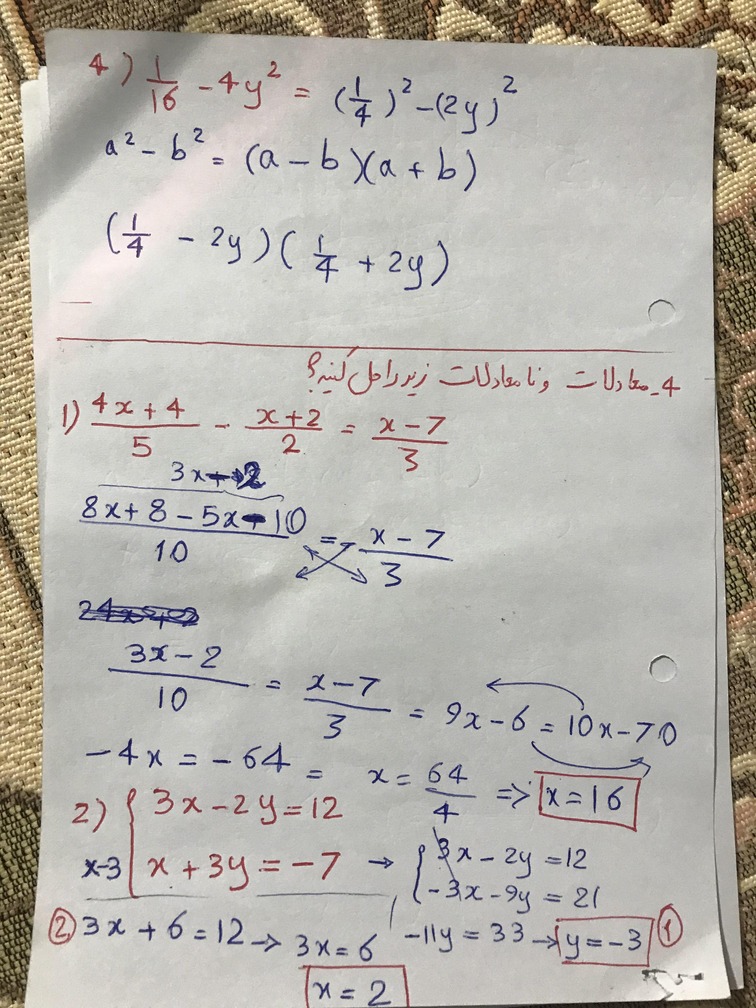 4) 1/16 - 4y² = (1/4)² - (2y)²
a² - b² = (a - b)(a + b)
(1/4 - 2y)(1/4 + 2y)
4_ معادلات و نامعادلات زیر را حل کنید؟
1) (4x+4)/5 - (x+2)/2 = (x-7)/3
3x-2
(8x+8-5x-10)/10 = (x-7)/3
(3x-2)/10 = (x-7)/3 = 9x-6 = 10x-70
-4x = -64 = x = 64/4 => x=16
2) { 3x-2y=12
x-3 { x+3y=-7 → { 3x-2y=12
-3x-9y=21
② 3x+6=12 → 3x=6 -11y=33 → y=-3 ①
x=2